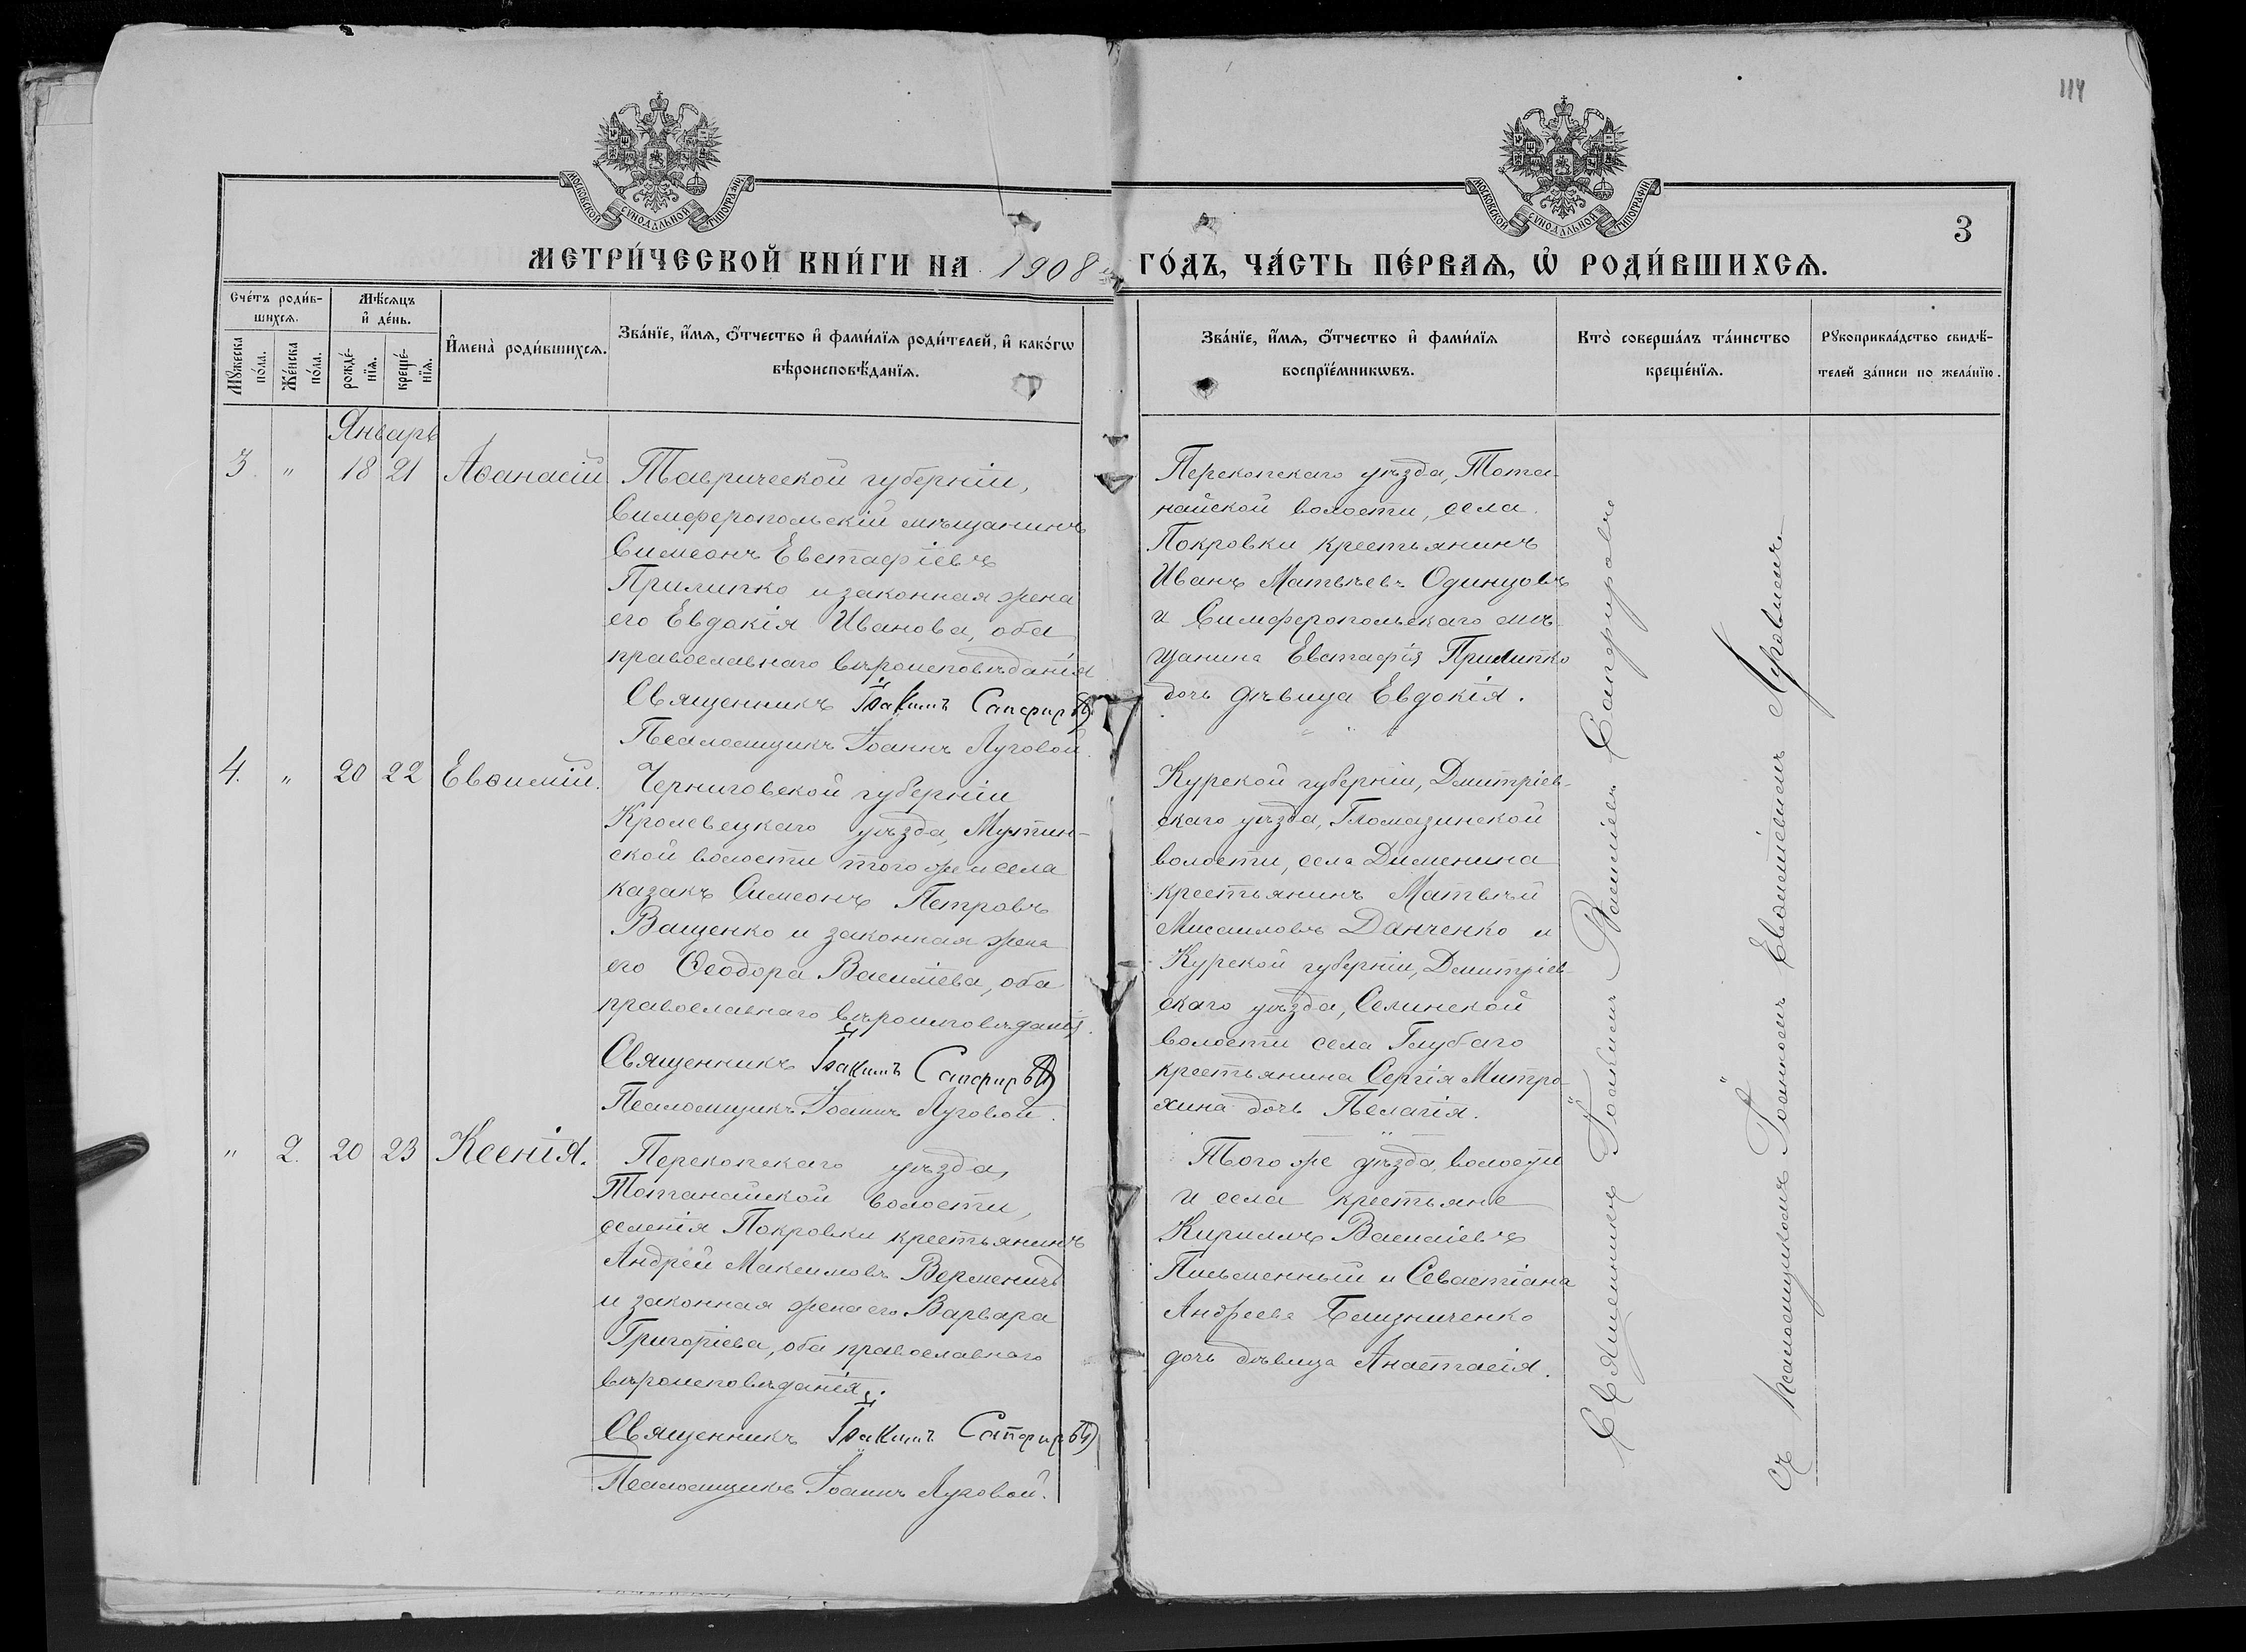 114
МОСКОВСКОЙ СѴНОДАЛЬНОЙ ТИПОГРАФІИ.
МОСКОВСКОЙ СѴНОДАЛЬНОЙ ТИПОГРАФІИ.
3
МЕТРИ́ЧЕСКОЙ КНИ́ГИ НА 1908 й
ГО́ДЪ, ЧА́СТЬ ПЕ́РВАЯ, Ѡ҆ РОДИ́ВШИХСЯ.
Сче́тъ роди́в-
шихся.
Мꙋ́жеска
по́ла.
Же́нска
по́ла.
Мѣ́сяцъ
и҆ де́нь.
рожде́-
нїя.
креще́-
нїя.
И҆мена̀ роди́вшихся.
Зва́нїе, и҆́мя, ѻ҆́тчество и҆ фами́лїя роди́телей, и҆ како́гѡ
вѣроисповѣ́данїя.
Зва́нїе, и҆́мя, ѻ҆́тчество и҆ фами́лїя
воспрїе́мникѡвъ.
Кто̀ соверша́лъ та́инство
креще́нїя.
Рꙋкоприкла́дство свидѣ́-
телей за́писи по жела́нїю.
Январь
3. " 18 21 Аѳанасій.
Таврической губерніи,
Симферопольскій мѣщанинъ
Симеонъ Евстафіевъ
Прилипко и законная жена
его Евдокія Иванова, оба
православнаго вѣроисповѣданія
Священникъ Іоакимъ Сапфировъ
Псаломщикъ Іоаннъ Луговой.
Перекопскаго уѣзда, Тота-
найской волости, села
Покровки крестьянинъ
Иванъ Матвѣевъ Одинцовъ
и Симферопольскаго мѣ-
щанина Евстафія Прилипко
дочь дѣвица Евдокія.
4. " 20 22 Евѳимій.
Черниговской губерніи
Кролевецкаго уѣзда, Мутин-
ской волости того же и села
казакъ Симеонъ Петровъ
Ващенко и законная жена
его Ѳеодора Василіева, оба
православнаго вѣроисповѣданія.
Священникъ Іоакимъ Сапфировъ
Псаломщикъ Іоаннъ Луговой.
Курской губерніи, Дмитріев-
скаго уѣзда, Гломазинской
волости, села Дименина
крестьянинъ Матвѣй
Мисаиловъ Данченко и
Курской губерніи, Дмитріев-
скаго уѣзда, Селинской
волости села Глубаго
крестьянина Сергія Митро-
хина дочь Пелагія.
" 2. 20 23 Ксенія.
Перекопскаго уѣзда,
Тотанайской волости,
селенія Покровки крестьянинъ
Андрей Максимовъ Верменичъ
и законная жена его Варвара
Григоріева, оба православнаго
вѣроисповѣданія.
Священникъ Іоакимъ Сапфировъ
Псаломщикъ Іоаннъ Луговой.
Того же уѣзда, волости
и села крестьяне
Кириллъ Василіевъ
Письменный и Севастіана
Андреева
дочь дѣвица Анастасія.
Священникъ Іоакимъ Василіевъ Сапфировъ
съ псаломщикомъ Іоанномъ Евѳиміемъ Луговымъ.